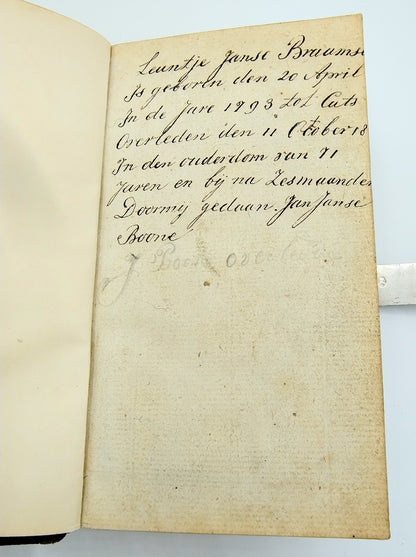 Leuntje Janse Braamse
Is geboren den 20 April
In de Jare 1793 tot Cats
Overleden den 11 October 18
In den ouderdom van 71
Jaren en bij na Zesmaanden
Doormij gedaan. Jan Janse
Boone
J Boone overleden